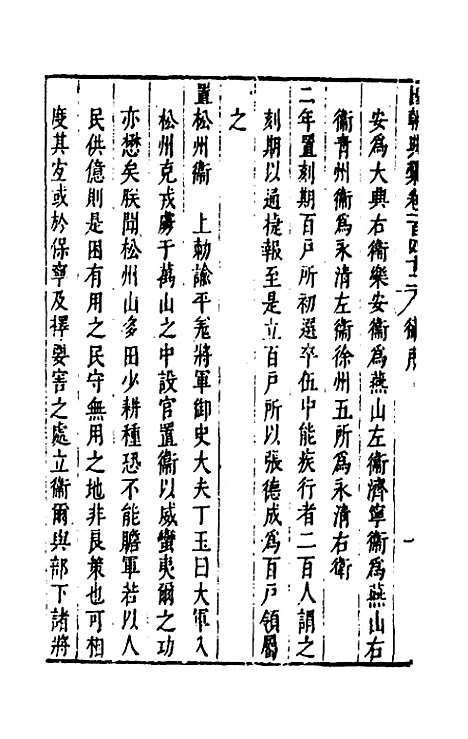 國朝典彙卷一百四十二 衛所 一
安爲大興右衛樂安衛爲燕山左衛濟寧衛爲燕山右
衛青州衛爲永清左衛徐州五所爲永清右衛
二年置刻期百戶所初選卒伍中能疾行者二百人謂之
刻期以通捷報至是立百戶所以張德成爲百戶領屬
之
置松州衛 上勅諭平羌將軍御史大夫丁玉曰大軍入
松州克戎虜于萬山之中設官置衛以威蠻夷爾之功
亦懋矣朕聞松州山多田少耕種恐不能贍軍若以人
民供億則是困有用之民守無用之地非良策也可相
度其宜或於保寧及擇要害之處立衛爾與部下諸將